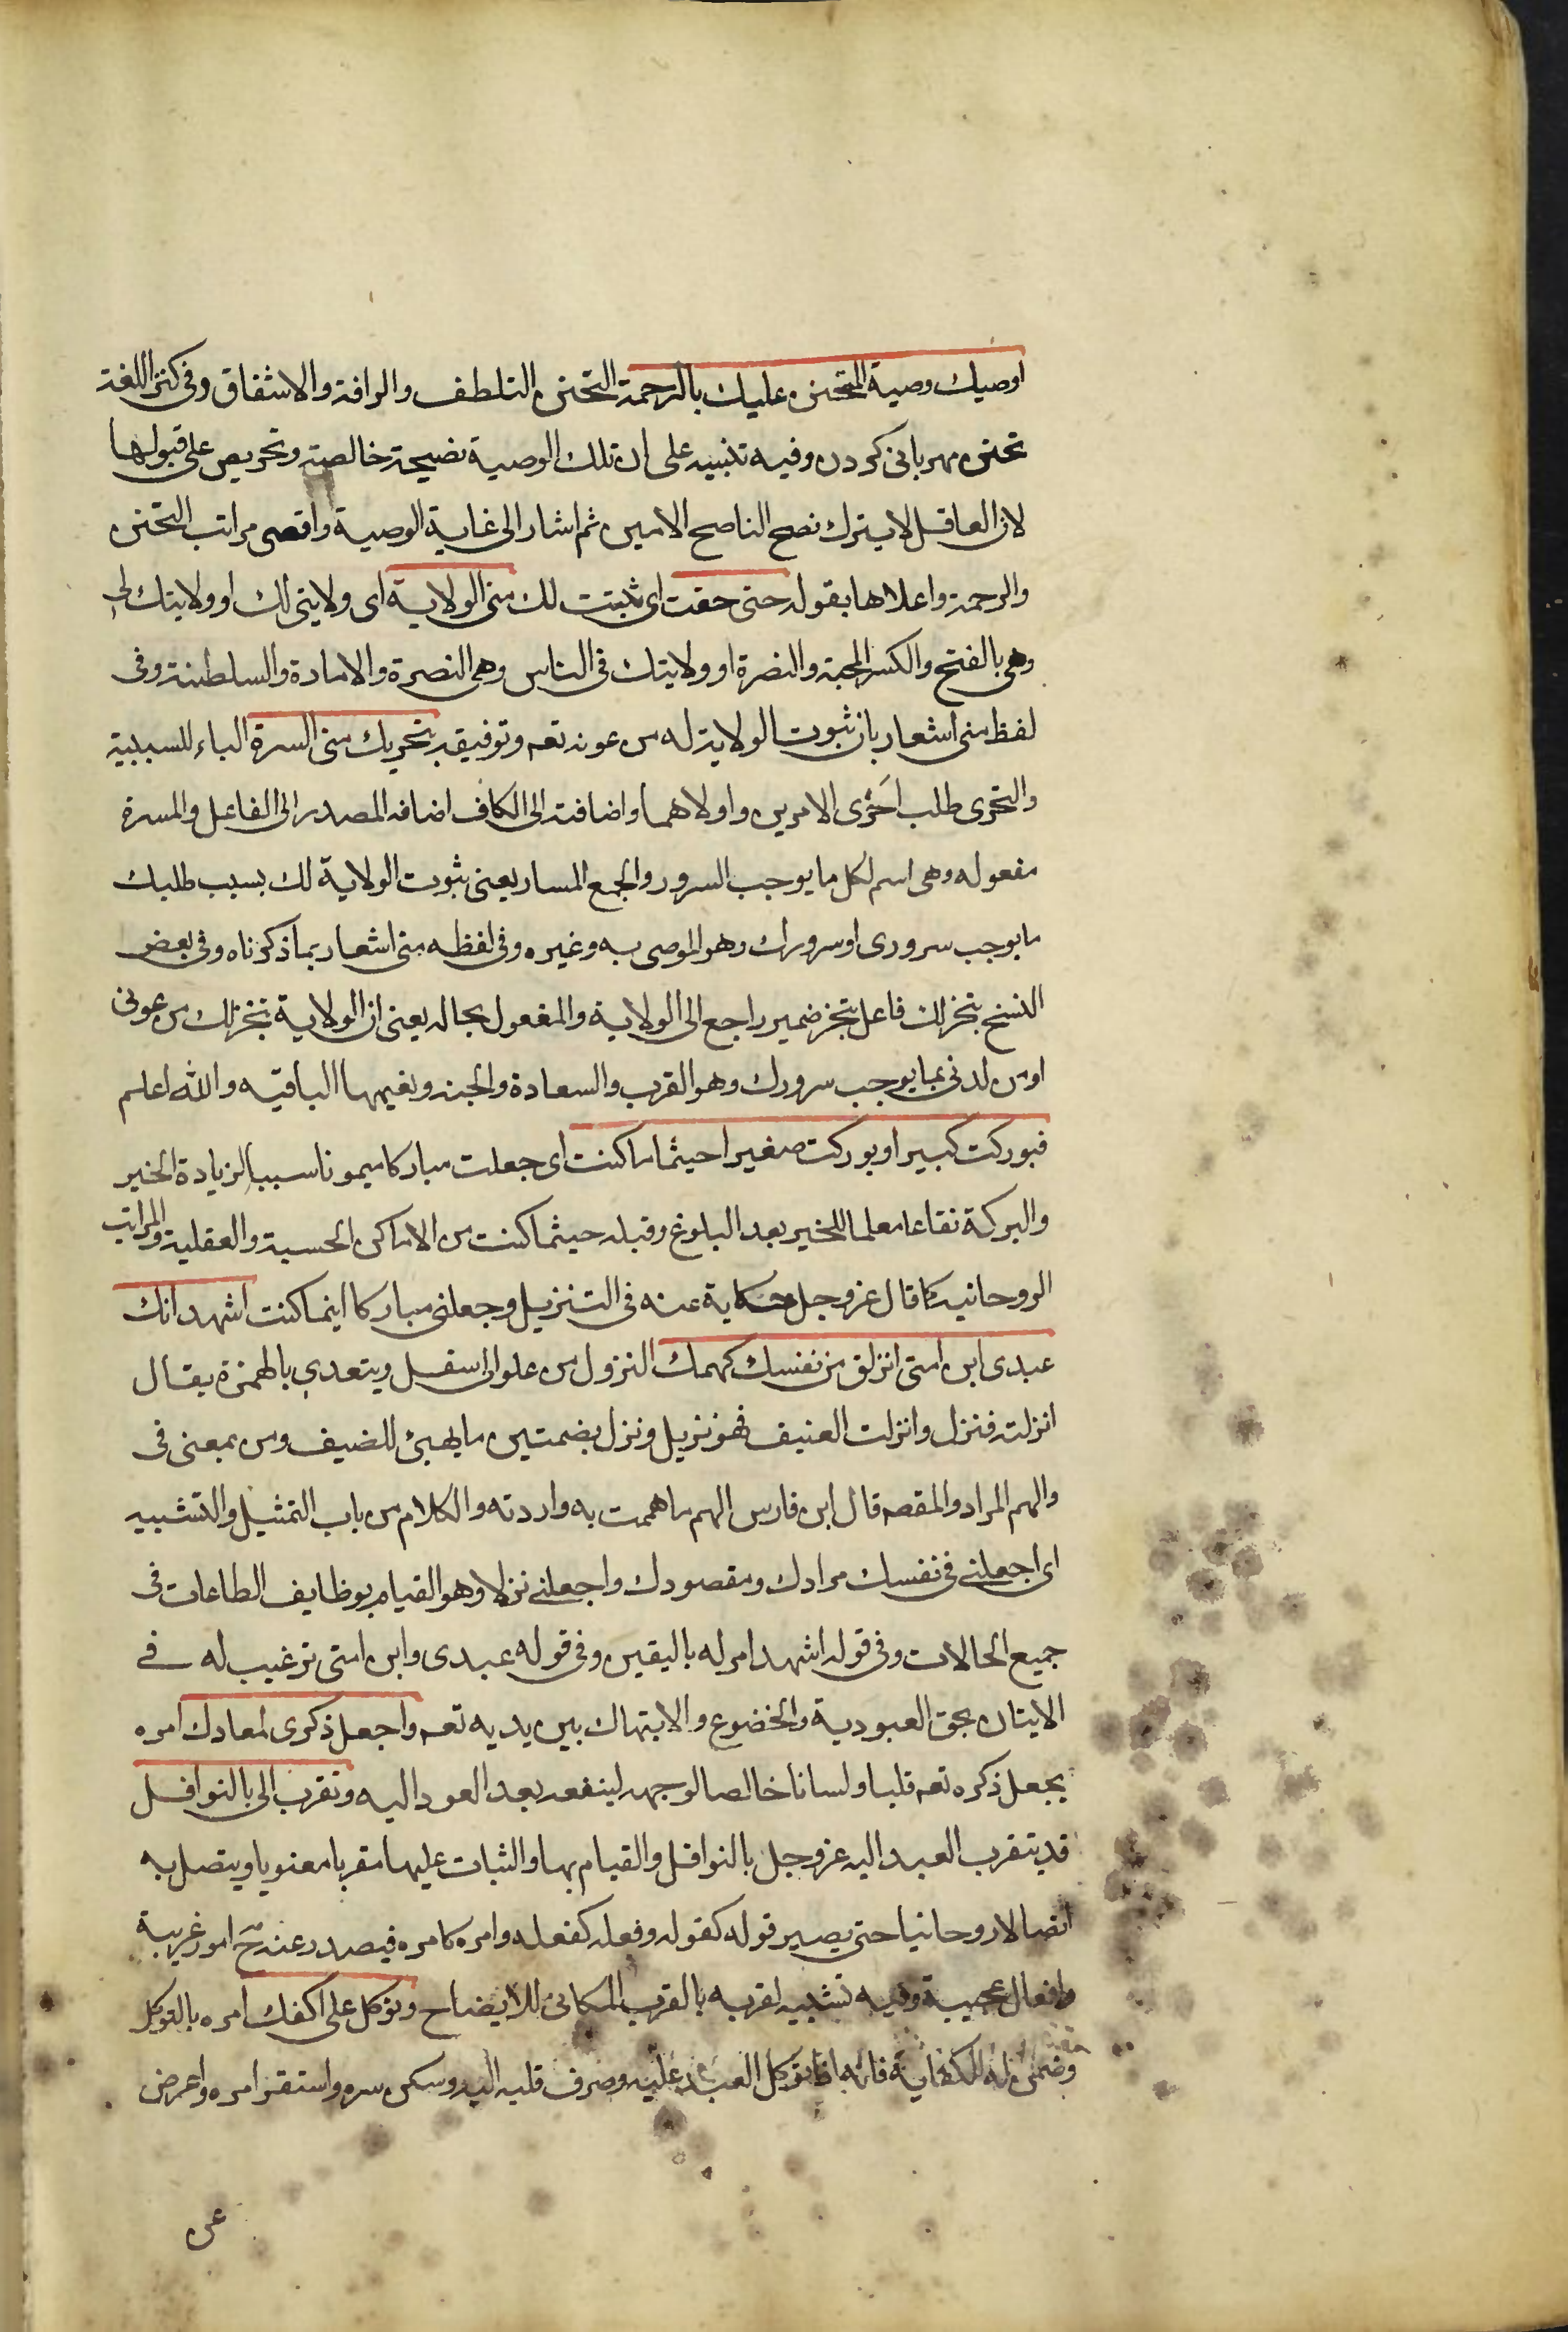 اوصيك وصية المتحنن عليك بالرحمة التحنن التلطف والرافة والاشفاق وفى كنز اللغة
تحنن مهربانى كردن وفيه تنبيه على ان تلك الوصية نصيحة خالصة وتحريص على قبولها
لان العاقل لا يترك نصح الناصح الامين ثم اشار الى غاية الوصية واقصى مراتب التحنن
والرحمة واعلاها بقوله حتى حقت اى ثبتت لك منى الولاية اى ولايتى لك او ولايتك لى
وهى بالفتح والكسر المحبة والنصرة او ولايتك فى الناس وهى النصرة والامارة والسلطنة وفى
لفظ منى اشعار بان ثبوت الولاية له من عونه تعم وتوفيقه بتحريك منى المسرة الباء للسببية
والتحرى طلب احرى الامرين واولاهما واضافته الى الكاف اضافه المصدر الى الفاعل والمسرة
مفعوله وهى اسم لكل ما يوجب السرور والجمع المسار يعنى ثبوت الولاية لك بسبب طلبك
ما يوجب سرورى او سرورك وهو الموصى به وغيره وفى لفظه منى اشعار بما ذكرناه وفى بعض
النسخ بتنجز لك فاعل بتنجز ضمير راجع الى الولاية والمفعول بحاله يعنى ان الولاية تنجز لك من عونى
او من لدنى بما يوجب سرورك وهو القرب والسعادة والجنة ونعيمها الباقيه والله اعلم
فبوركت كبيرا وبوركت صغيرا حيثما ما كنت اى جعلت مباركا ميمونا سببا لزيادة الخير
والبركة نفاعا معلما للخير بعد البلوغ وقبله حيثما كنت من الاماكن الحسية والعقلية والمراتب
الروحانية كما قال عز وجل حكاية عنه فى التنزيل وجعلنى مباركا اينما كنت اشهد انك
عبدى ابن امتى انزلنى من نفسك كهمك النزول من علو الى اسفل ويتعدى بالهمزة يقال
انزلته فنزل وانزلت الضيف فهو نزيل ونزل بضمتين ما يهيئ للضيف ومن بمعنى فى
والهم المراد والمقصد قال ابن فارس الهم ما هممت به واردته والكلام من باب التمثيل والتشبيه
اى اجعلنى فى نفسك مرادك ومقصودك واجعلنى نزلا وهو القيام بوظايف الطاعات فى
جميع الحالات وفى قوله اشهد امر له باليقين وفى قوله عبدى وابن امتى ترغيب له فى
الاتيان بحق العبودية والخضوع والابتهال بين يديه تعم واجعل ذكرى لمعادك امره
بجعل ذكره تعم قلبا ولسانا خالصا لوجهه لينفعه بعد العود اليه وتقرب الى بالنوافل
قد يتقرب العبد اليه عز وجل بالنوافل والقيام بها والثبات عليها تقربا معنويا ويتصل به
اتصالا روحانيا حتى يصير قوله كقوله وفعله كفعله وامره كامره فيصدر عنه ح امور غريبة
وافعال عجيبة وفيه تشبيه لقربه بالقرب المكانى للايضاح وتوكل على اكفك امره بالتوكل
وضمن له الكفاية فانه اذا توكل العبد عليه وصرف قلبه اليه وسكن سره واستقر امره واعرض
عن